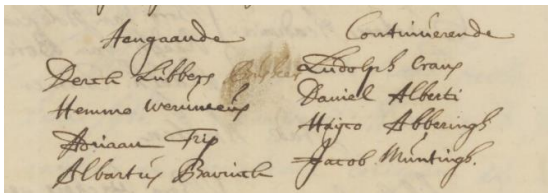 Aengaande
Derck Lubbers
Hemmo Wermeus
Adriaan Trip
Albartus Bavinck
Continuerende
Ludolph Crans
Daniel Alberti
Hajco Abberingh
Jacob Muntingh.